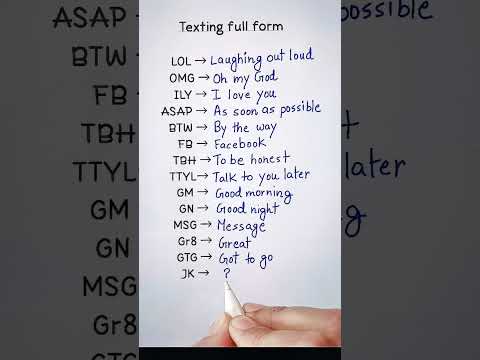 Texting full form
LOL → Laughing out loud
OMG → Oh my God
ILY → I love you
ASAP → As soon as possible
BTW → By the way
FB → Facebook
TBH → To be honest
TTYL → Talk to you later
GM → Good morning
GN → Good night
MSG → Message
Gr8 → Great
GTG → Got to go
JK → ?
ASAP
BTW
FB
TBH
TTYL
GM
GN
MSG
Gr8
possible
later